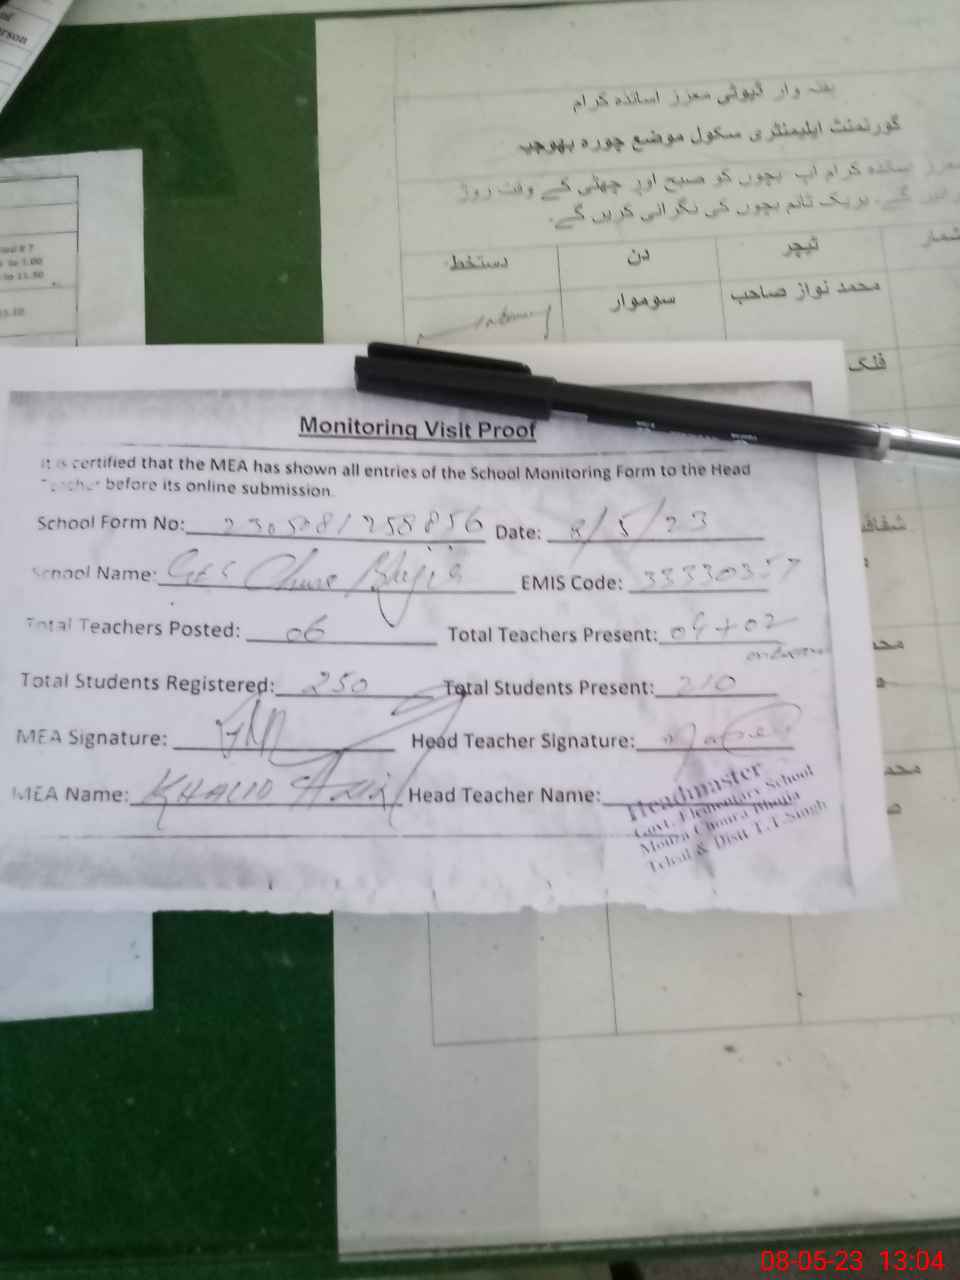 erson
ہفتہ وار ڈیوٹی معزز اساتذہ کرام
گورنمنٹ ایلیمنٹری سکول موضع چورہ بھوجیہ
اساتذہ کرام آپ بچوں کو صبح اور چھٹی کے وقت روڑ
گے۔ بریک ٹائم بچوں کی نگرانی کریں گے۔
شمار ٹیچر دن دستخط
محمد نواز صاحب سوموار
فلک
Monitoring Visit Proof
It is certified that the MEA has shown all entries of the School Monitoring Form to the Head
Teacher before its online submission.
School Form No: 230508/258856 Date: 8/5/23
School Name: GES EMIS Code: 33330357
Total Teachers Posted: 06 Total Teachers Present: 04+02
Total Students Registered: 250 Total Students Present: 210
MEA Signature: Head Teacher Signature:
MEA Name: KHALID Head Teacher Name:
Headmaster
Govt. Elementary School
Mouza Choura Bhujia
Tehsil & Distt T.T.Singh
08-05-23 13:04